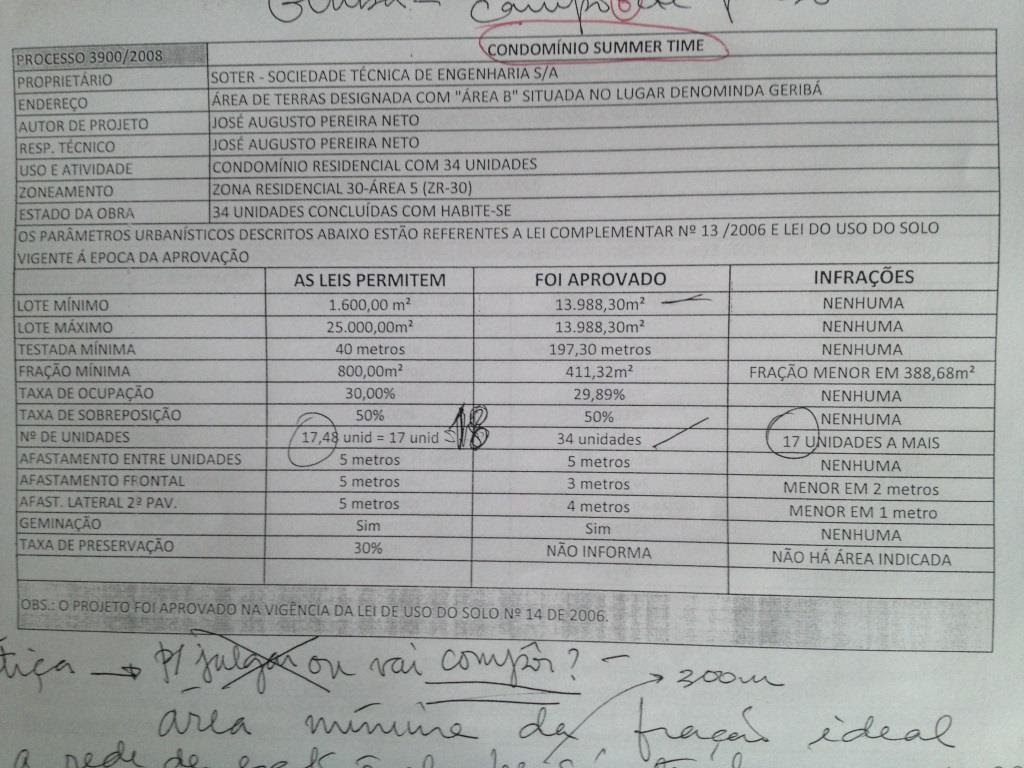 PROCESSO 3900/2008 CONDOMÍNIO SUMMER TIME
PROPRIETÁRIO SOTER - SOCIEDADE TÉCNICA DE ENGENHARIA S/A
ENDEREÇO ÁREA DE TERRAS DESIGNADA COM "ÁREA B" SITUADA NO LUGAR DENOMINDA GERIBÁ
AUTOR DE PROJETO JOSÉ AUGUSTO PEREIRA NETO
RESP. TÉCNICO JOSÉ AUGUSTO PEREIRA NETO
USO E ATIVIDADE CONDOMÍNIO RESIDENCIAL COM 34 UNIDADES
ZONEAMENTO ZONA RESIDENCIAL 30-ÁREA 5 (ZR-30)
ESTADO DA OBRA 34 UNIDADES CONCLUÍDAS COM HABITE-SE
OS PARÂMETROS URBANÍSTICOS DESCRITOS ABAIXO ESTÃO REFERENTES A LEI COMPLEMENTAR Nº 13 /2006 E LEI DO USO DO SOLO
VIGENTE Á EPOCA DA APROVAÇÃO
AS LEIS PERMITEM FOI APROVADO INFRAÇÕES
LOTE MÍNIMO 1.600,00 m² 13.988,30m² NENHUMA
LOTE MÁXIMO 25.000,00m² 13.988,30m² NENHUMA
TESTADA MÍNIMA 40 metros 197,30 metros NENHUMA
FRAÇÃO MÍNIMA 800,00m² 411,32m² FRAÇÃO MENOR EM 388,68m²
TAXA DE OCUPAÇÃO 30,00% 29,89% NENHUMA
TAXA DE SOBREPOSIÇÃO 50% 50% NENHUMA
Nº DE UNIDADES 17,48 unid = 17 unid 18 34 unidades 17 UNIDADES A MAIS
AFASTAMENTO ENTRE UNIDADES 5 metros 5 metros NENHUMA
AFASTAMENTO FRONTAL 5 metros 3 metros MENOR EM 2 metros
AFAST. LATERAL 2º PAV. 5 metros 4 metros MENOR EM 1 metro
GEMINAÇÃO Sim Sim NENHUMA
TAXA DE PRESERVAÇÃO 30% NÃO INFORMA NÃO HÁ ÁREA INDICADA
OBS.: O PROJETO FOI APROVADO NA VIGÊNCIA DA LEI DE USO DO SOLO Nº 14 DE 2006.
tiça → p/ julgar ou vai compôr? –
→ 300m
área mínima da fração ideal
a rede de